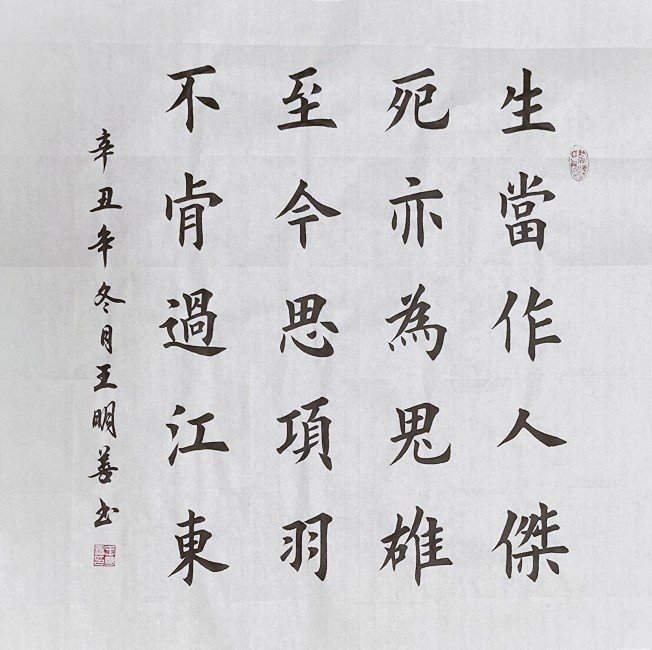 生當作人傑
死亦為鬼雄
至今思項羽
不肯過江東
辛丑年冬月王明善书